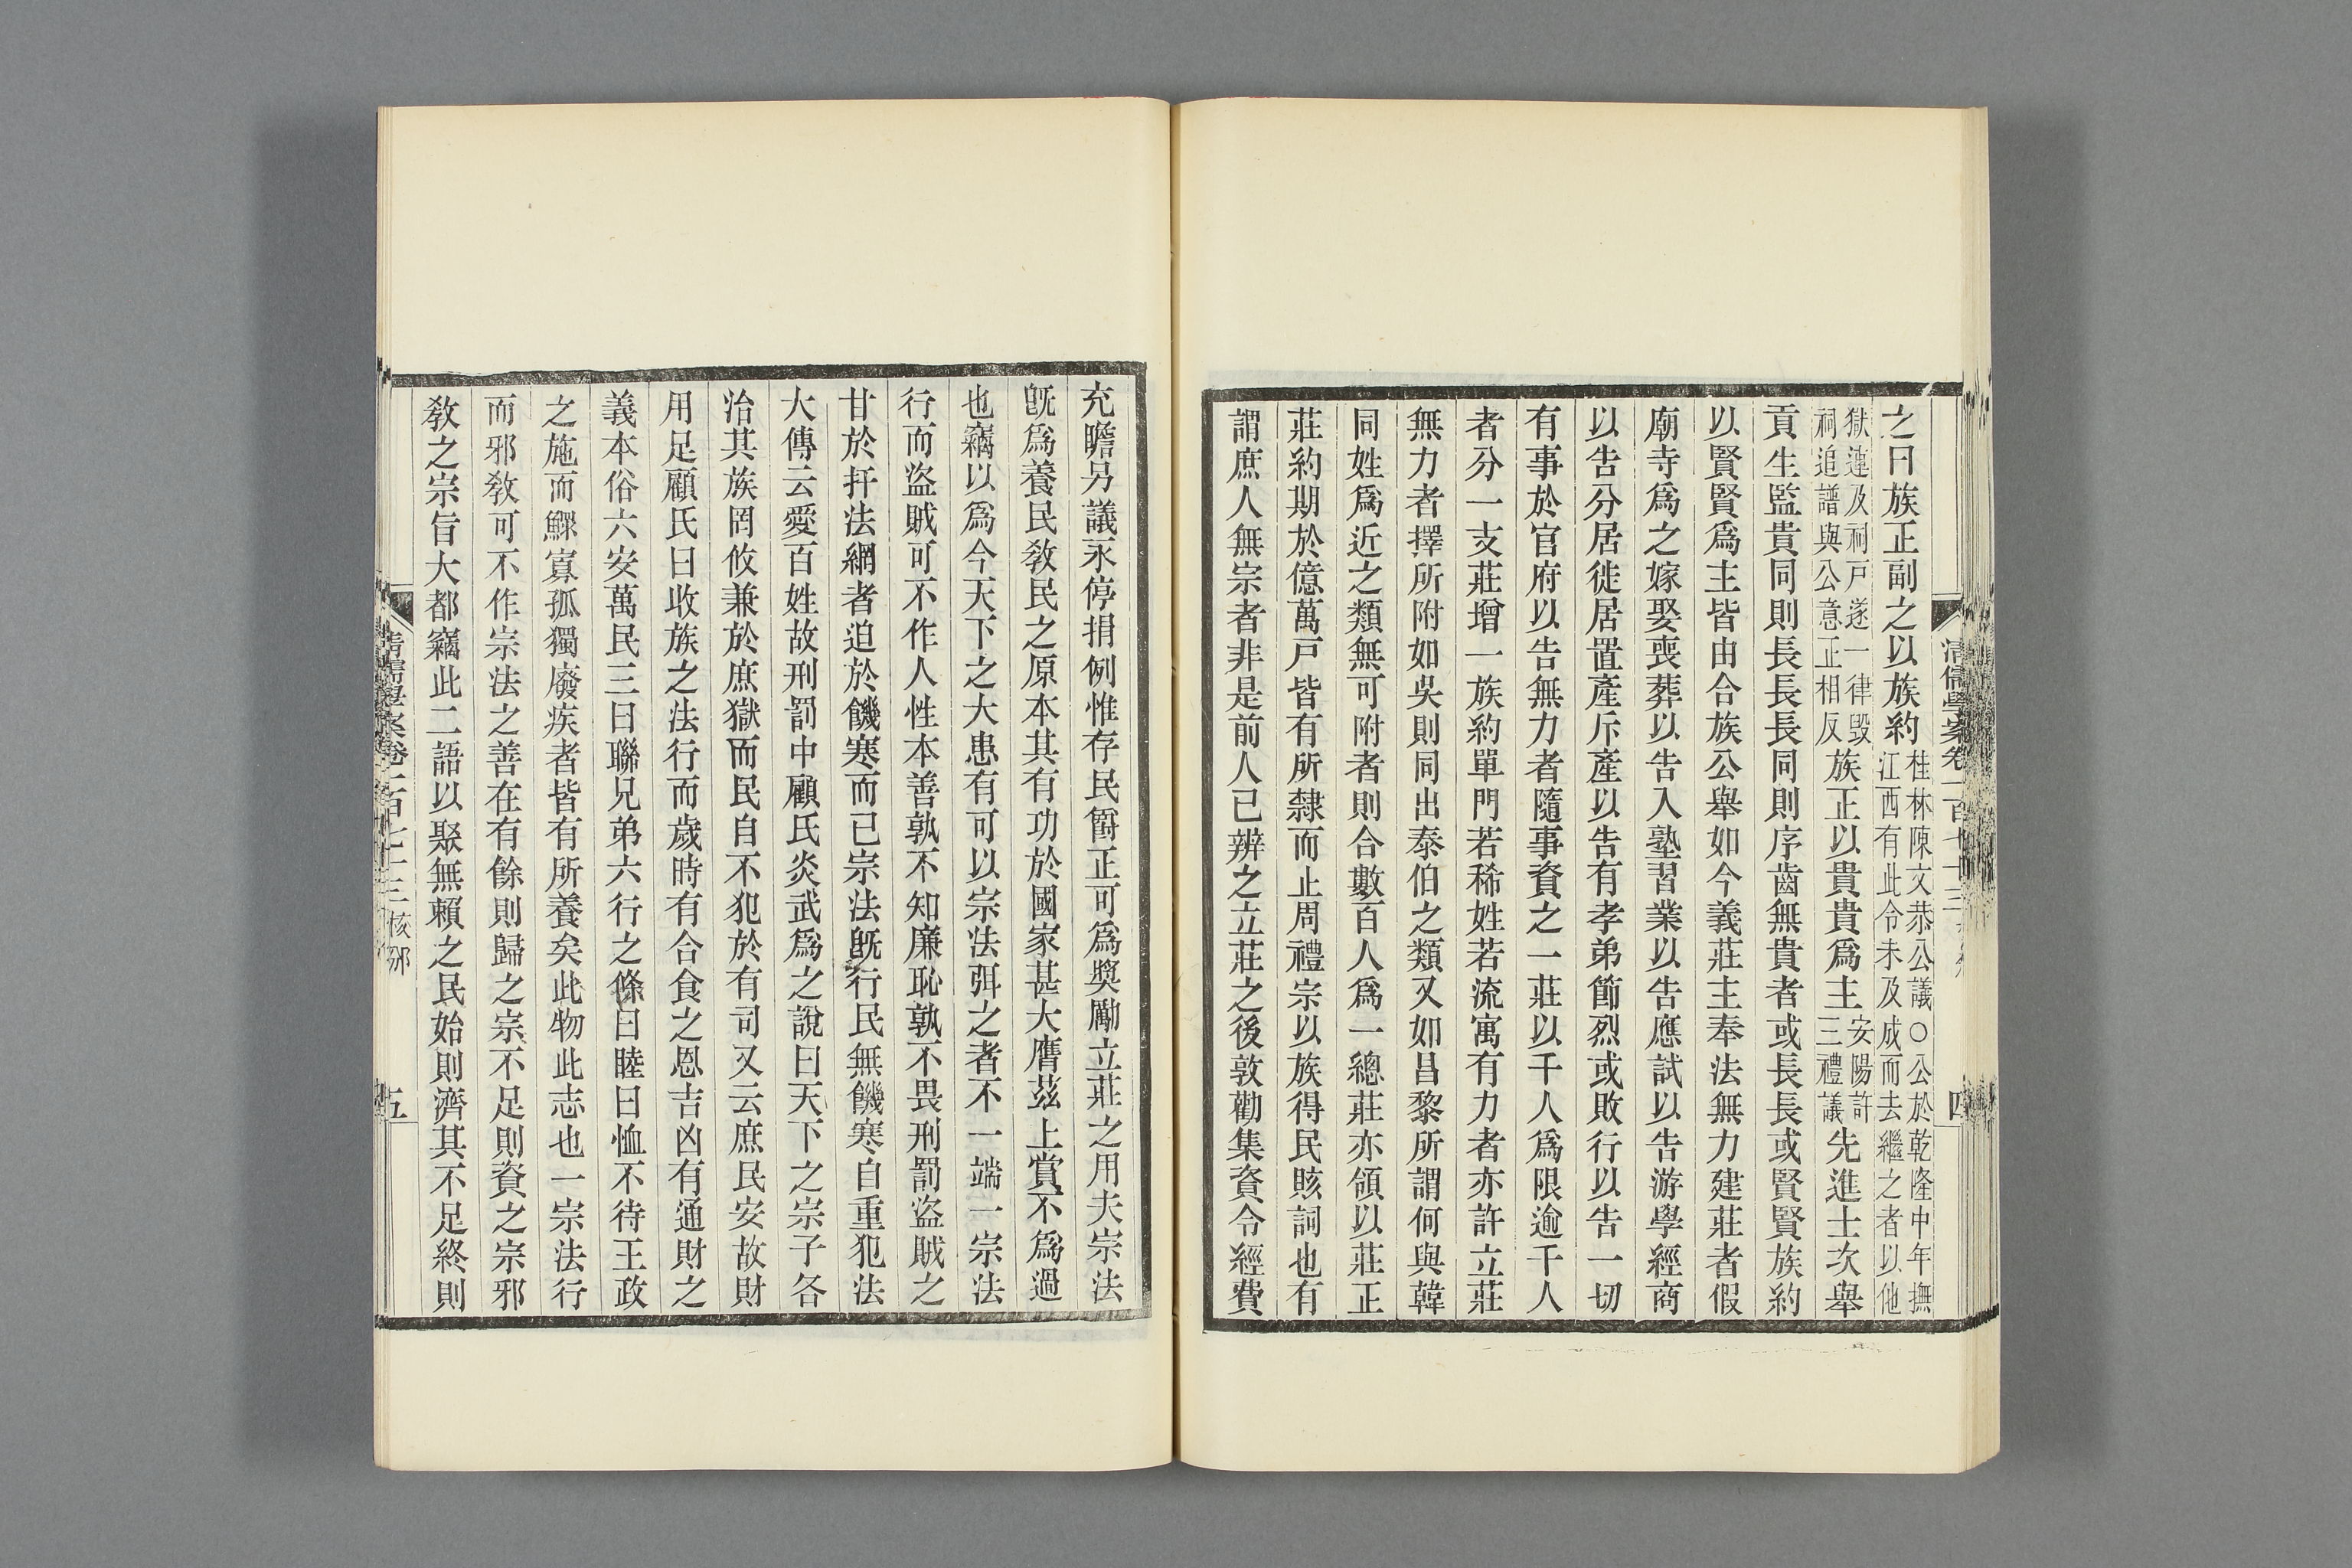 之曰族正副之以族約桂林陳文恭公議○公於乾隆中年撫江西有此令未及成而去繼之者以他
獄連及祠戸遂一律毀祠追譜與公意正相反族正以貴貴爲主安陽許三禮議先進士次舉
貢生監貴同則長長長同則序齒無貴者或長長或賢賢族約
以賢賢爲主皆由合族公舉如今義莊主奉法無力建莊者假
廟寺爲之嫁娶喪葬以告入塾習業以告應試以告游學經商
以告分居徙居置產斥產以告有孝弟節烈或敗行以告一切
有事於官府以告無力者隨事資之一莊以千人爲限逾千人
者分一支莊增一族約單門若稀姓若流寓有力者亦許立莊
無力者擇所附如吳則同出泰伯之類又如昌黎所謂何與韓
同姓爲近之類無可附者則合數百人爲一總莊亦領以莊正
莊約期於億萬戸皆有所隸而止周禮宗以族得民賅詞也有
謂庶人無宗者非是前人已辨之立莊之後敦勸集資令經費
清儒學案卷一百七十三
四
充贍另議永停捐例惟存民爵正可爲奬勵立莊之用夫宗法
旣爲養民敎民之原本其有功於國家甚大膺茲上賞不爲過
也竊以爲今天下之大患有可以宗法弭之者不一端一宗法
行而盜賊可不作人性本善孰不知廉恥孰不畏刑罰盜賊之
甘於扞法網者迫於饑寒而已宗法旣行民無饑寒自重犯法
大傳云愛百姓故刑罰中顧氏炎武爲之說曰天下之宗子各
治其族罔攸兼於庶獄而民自不犯於有司又云庶民安故財
用足顧氏曰收族之法行而歲時有合食之恩吉凶有通財之
義本俗六安萬民三曰聯兄弟六行之條曰睦曰恤不待王政
之施而鰥寡孤獨廢疾者皆有所養矣此物此志也一宗法行
而邪敎可不作宗法之善在有餘則歸之宗不足則資之宗邪
敎之宗旨大都竊此二語以聚無賴之民始則濟其不足終則
清儒學案卷一百七十三
五